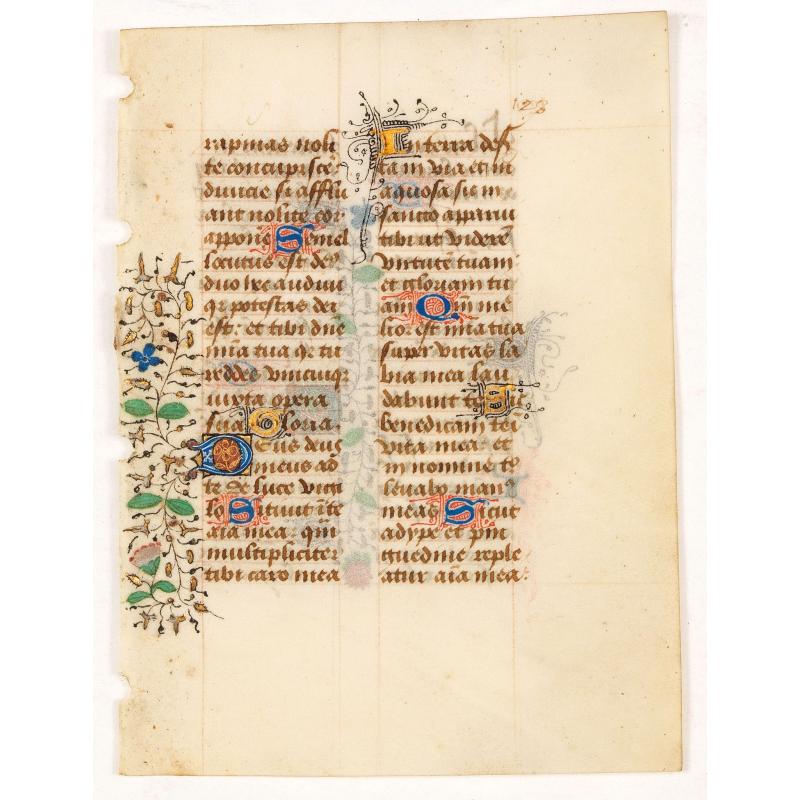 128
rapinas noli
te concupisce˜
divicie si afflu
ant nolite cor
appone Semel
locutus est deꝰ
duo hec audivi
qꝛ potestas dei
est: et tibi dne
mīa tua qꝛ tu
reddes vnicuiqꝫ
iuxta opera
sua Gloria.
Deus deus
meus ad
te de luce vigi
lo Sitivit ī te
aīa mea: qm̄
multipliciter
tibi caro mea
In terra deſ
ta in via et in
aquosa sic in
sancto apparui
tibi ut videre˜
virtute˜ tuam
et gloriam tu
am Qm̄ me
lior est mīa tua
super vitas la
bia mea lau
dabunt te Sic
benedicam te ī
vita mea et
in nomine to
levabo manꝰ
meas Sicut
adype et pin
guedine reple
atur aīa mea: